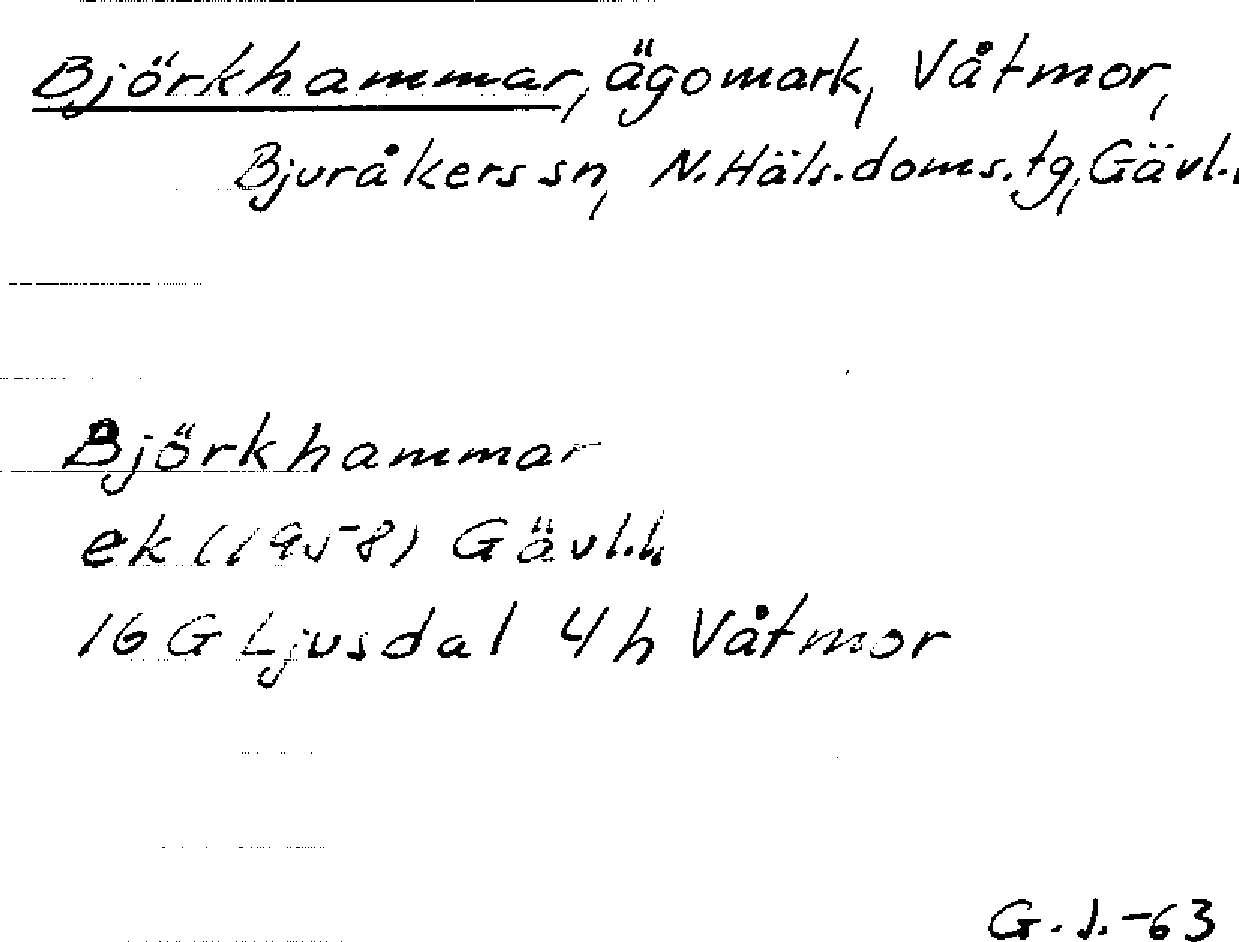 Björkhammar, ägomark, Våtmor,
Bjuråkers sn, N. Häls. doms. tg, Gävl.
Björkhammar
ek (1958) Gävl.l.
16 G Ljusdal 4 h Våtmor
G. J. -63